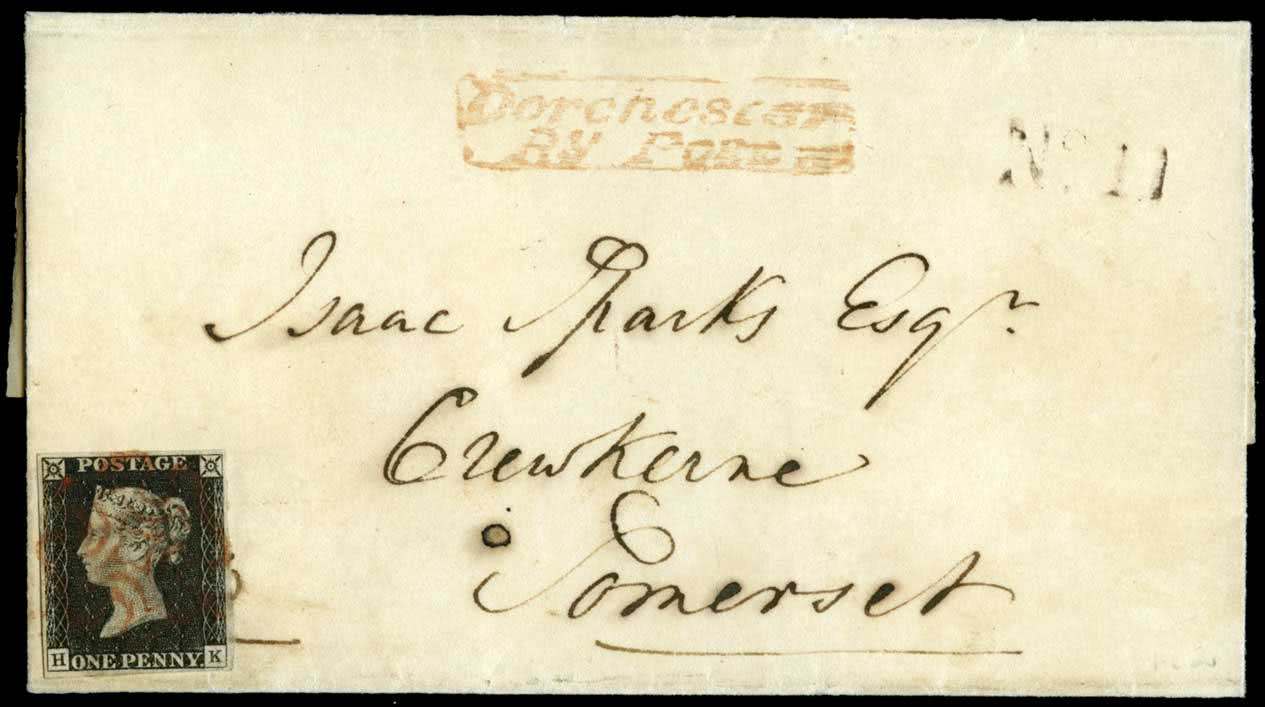 Dorchester
By Post
No. 11
Isaac Sparks Esqr.
Crewkerne
Somerset
POSTAGE
H ONE PENNY. K